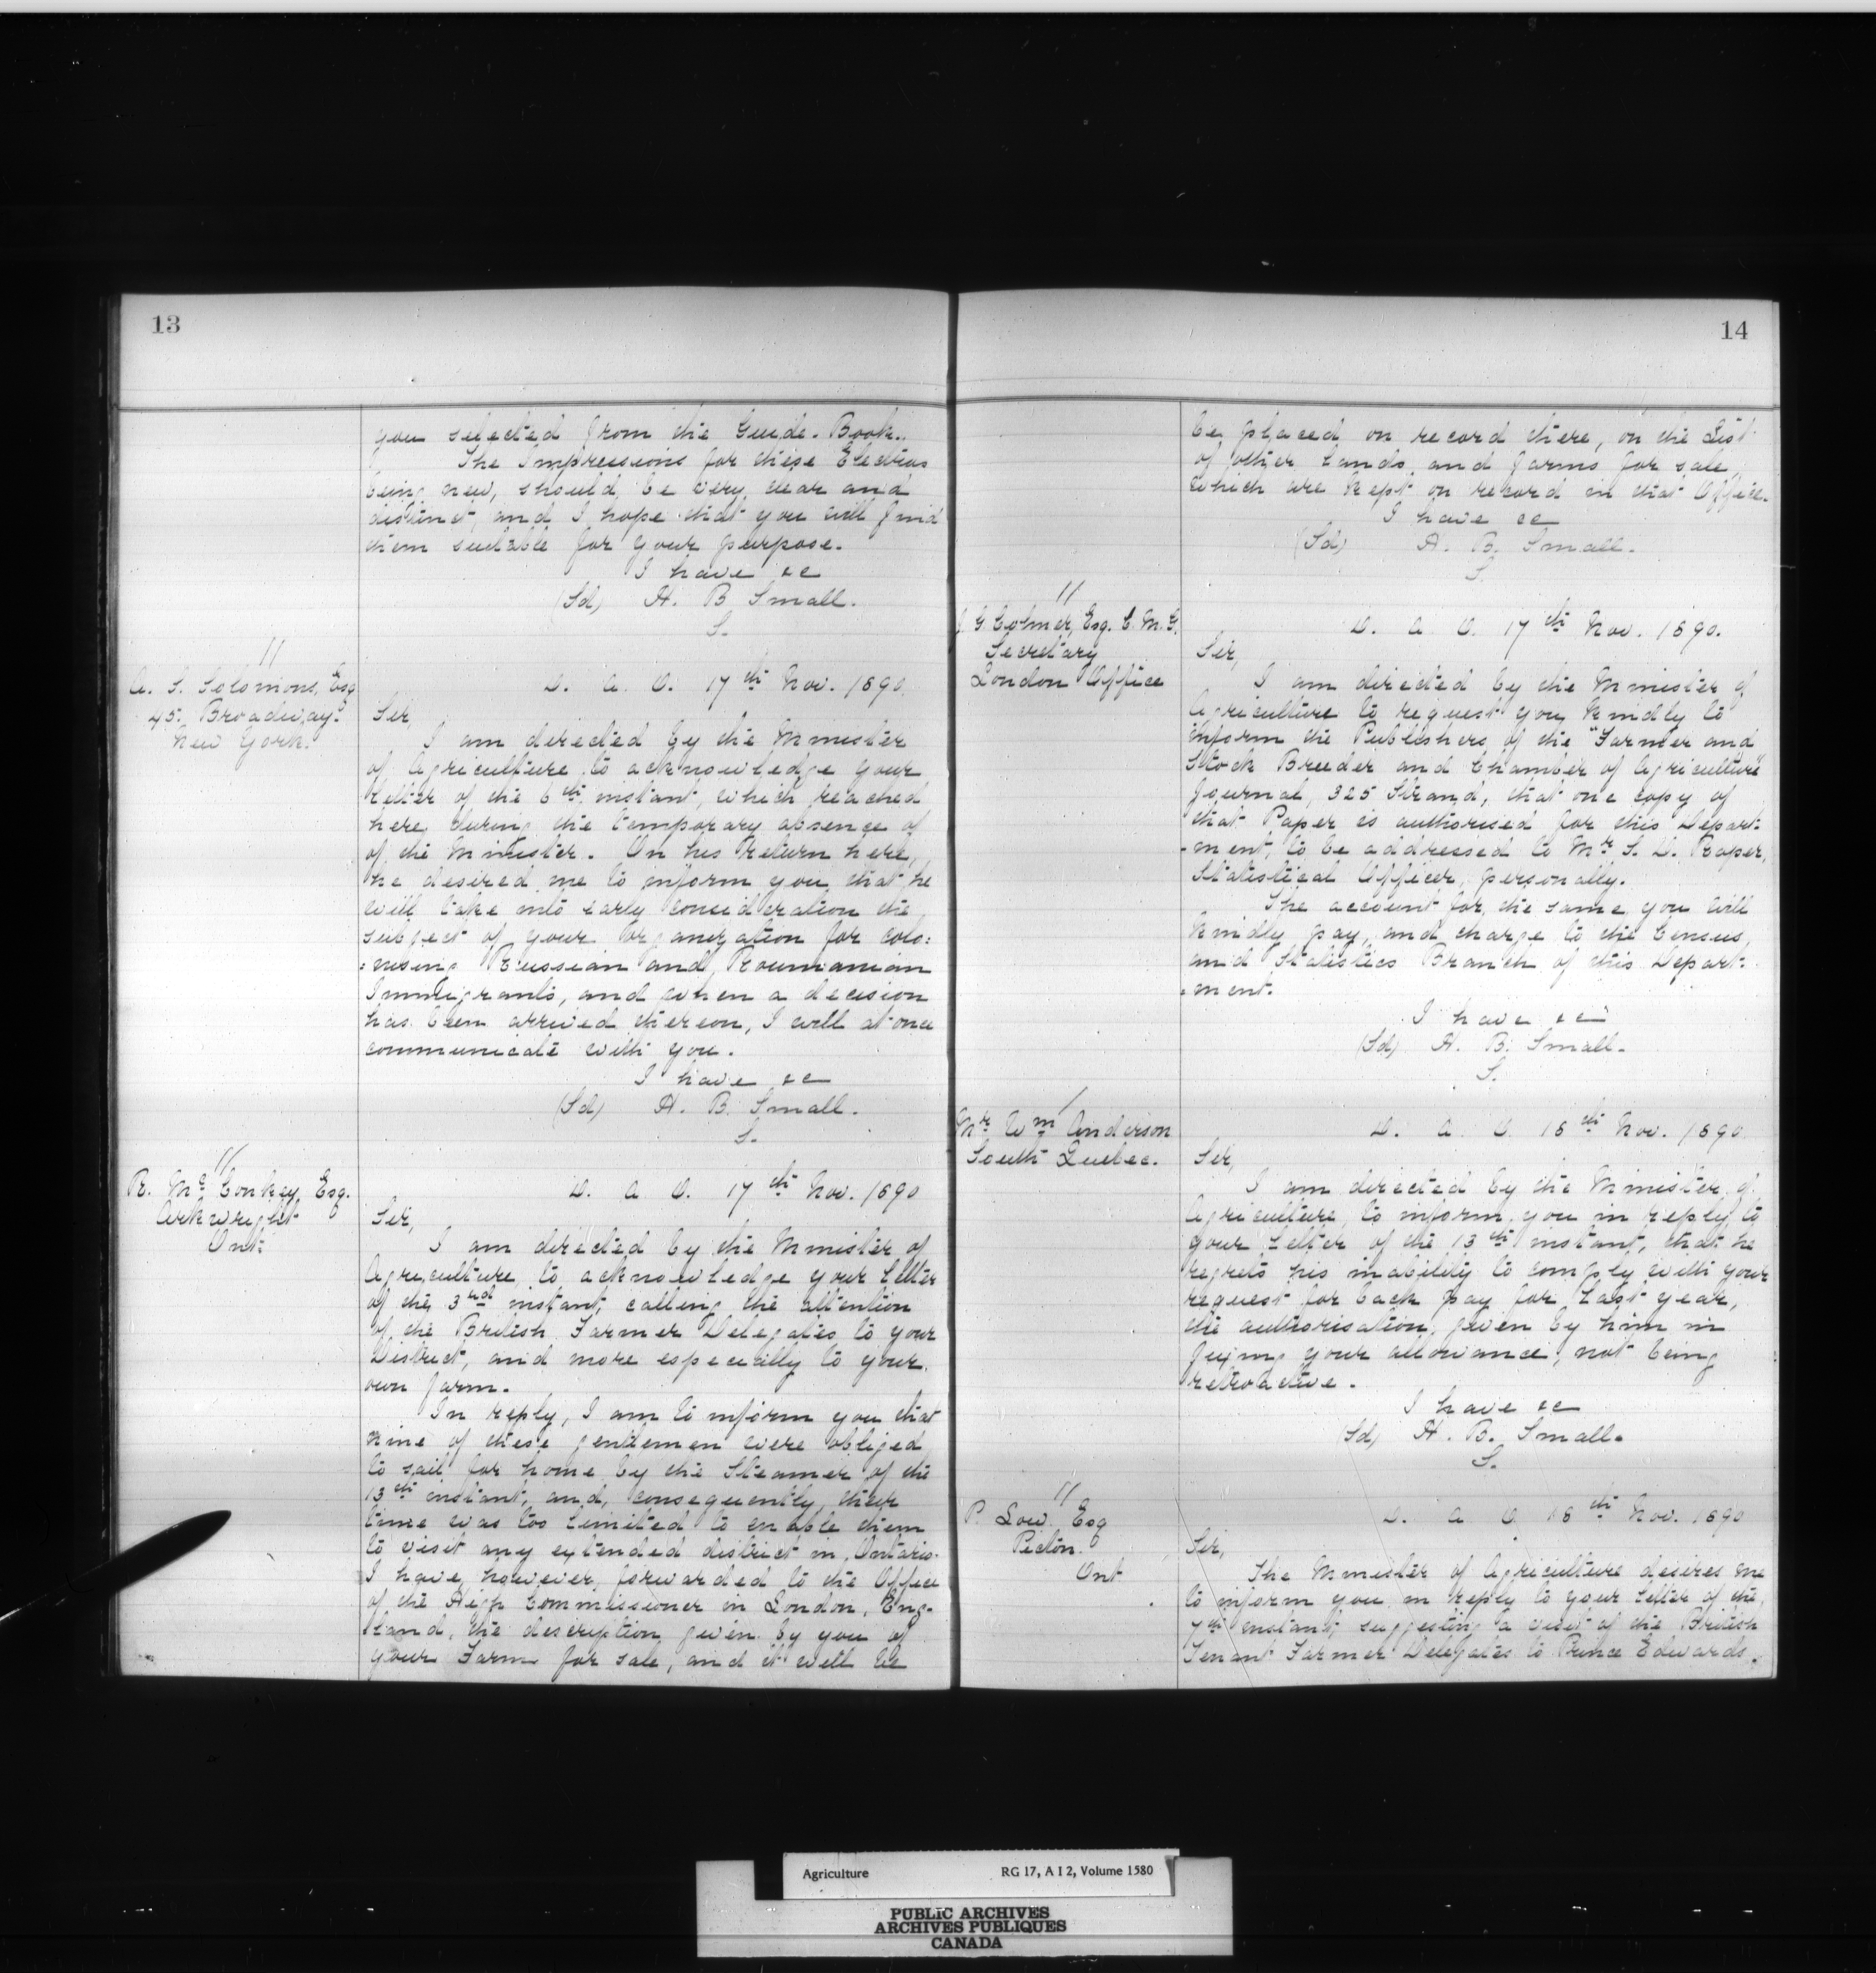 13
you selected from the Guide-Book.
The Impressions for these Electros
being new, should be very clear and
distinct, and I hope that you will find
them suitable for your purpose.
I have &c
(Sd) H. B Small.
S.
//
A. S. Solomons, Esq
45. Broadway.
New York.
D. a O. 17th Nov. 1890.
Sir,
I am directed by the Minister
of Agriculture to acknowledge your
letter of the 6th instant, which reached
here during the temporary absence of
of the Minister. On his return here,
he desired me to inform you that he
will take into early consideration the
subject of your organization for colo:
:nising Russian and Roumanian
Immigrants, and when a decision
has been arrived thereon, I will at once
communicate with you.
I have &c
(Sd) H. B. Small.
S.
//
R. McConkey, Esq.
Arkwright
Ont:
D. a O. 17th Nov. 1890
Sir,
I am directed by the Minister of
Agriculture to acknowledge your Letter
of the 3rd instant, calling the attention
of the British Farmer Delegates to your
District, and more especially to your
own farm.
In reply, I am to inform you that
nine of these gentlemen were obliged
to sail for home by the Steamer of the
13th instant, and, consequently, their
time was too limited to enable them
to visit any extended district in Ontario.
I have, however, forwarded to the Office
of the High Commissioner in London, Eng-
land, the description given by you of
your Farm for sale, and it will be
14
be placed on record there, on the List
of other Lands and farms for sale,
which are kept on record in that Office.
I have &c
(Sd) H. B. Small.
S.
//
J. G Colmer, Esq. C. M. G.
Secretary
London Office
D. a O. 17th Nov. 1890.
Sir,
I am directed by the Minister of
Agriculture to request you kindly to
inform the Publishers of the "Farmer and
Stock Breeder and Chamber of Agriculture"
Journal, 325 Strand, that one copy of
that Paper is authorised for this Depart:
-ment, to be addressed to Mr S. D. Roper,
Statistical Officer, personally.
The account for the same you will
kindly pay, and charge to the Census,
and Statistics Branch of this Depart:
:ment.
I have &c
(Sd) H. B. Small.
S.
/
Mr Wm Anderson
South Quebec.
D. a O. 18th Nov. 1890
Sir,
I am directed by the Minister of
Agriculture, to inform you in reply to
your Letter of the 13th instant, that he
regrets his inability to comply with your
request for back pay for last year,
the authorisation, given by him in
fixing your allowance, not being
retroactive.
I have &c
(Sd) H. B. Small.
S.
//
P. Low. Esq
Picton.
Ont
D. a O. 18th Nov. 1890
Sir,
The Minister of Agriculture desires me
to inform you in reply to your Letter of the,
7th instant, suggesting a visit of the British
Tenant Farmer Delegates to Prince Edwards.
Agriculture RG 17, A I 2, Volume 1580
PUBLIC ARCHIVES
ARCHIVES PUBLIQUES
CANADA